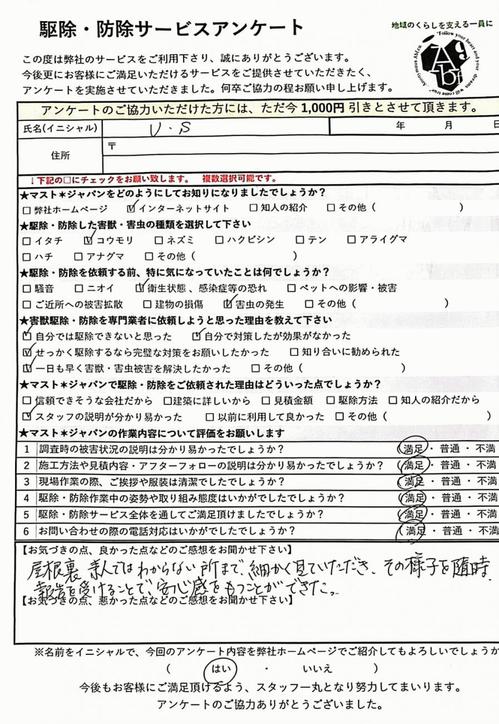 駆除・防除サービスアンケート
地域のくらしを支える一員に
この度は弊社のサービスをご利用下さり、誠にありがとうございます。
今後更にお客様にご満足いただけるサービスをご提供させていただきたく、
アンケートを実施させていただきました。何卒ご協力の程お願い申し上げます。
アンケートのご協力いただけた方には、ただ今1,000円引きとさせて頂きます。
氏名(イニシャル) U・S 年 月 日
住所 〒
↓下記の□にチェックをお願い致します。 複数選択可能です。
★マスト＊ジャパンをどのようにしてお知りになりましたでしょうか？
□ 弊社ホームページ ☑ インターネットサイト □ 知人の紹介 □ その他 ( )
★駆除・防除した害獣・害虫の種類を選択して下さい
□ イタチ ☑ コウモリ □ ネズミ □ ハクビシン □ テン □ アライグマ
□ ハチ □ アナグマ □ その他 ( )
★駆除・防除を依頼する前、特に気になっていたことは何でしょうか？
□ 騒音 □ ニオイ ☑ 衛生状態、感染症等の恐れ □ ペットへの影響・被害
□ ご近所への被害拡散 □ 建物の損傷 ☑ 害虫の発生 □ その他 ( )
★害獣駆除・防除を専門業者に依頼しようと思った理由を教えて下さい
☑ 自分では駆除できないと思った ☑ 自分で対策したが効果がなかった
☑ せっかく駆除するなら完璧な対策をお願いしたかった □ 知り合いに勧められた
☑ 一日も早く害獣・害虫被害を解決したかった □ その他 ( )
★マスト＊ジャパンで駆除・防除をご依頼された理由はどういった点でしょうか？
□ 信頼できそうな会社だから □建築に詳しいから □ 見積金額 □ 駆除方法 □ 知人の紹介だから
☑ スタッフの説明が分かり易かった □ 以前に利用して良かった □ その他 (
★マスト＊ジャパンの作業内容について評価をお願いします
1 調査時の被害状況の説明は分かり易かったでしょうか？ (満足・普通・不満
2 施工方法や見積内容・アフターフォローの説明は分かり易かったでしょうか？ (満足・普通・不満
3 現場作業の際、ご挨拶や服装は清潔でしたでしょうか？ (満足・普通・不満
4 駆除・防除作業中の姿勢や取り組み態度はいかがでしたでしょうか？ (満足・普通・不満
5 駆除・防除サービス全体を通してご満足頂けましたでしょうか？ (満足・普通・不満
6 お問い合わせの際の電話対応はいかがでしたでしょうか？ (満足・普通・不満
【お気づきの点、良かった点などのご感想をお聞かせ下さい】
屋根裏 素人ではわからない所まで、細かく見ていただき、その様子を随時
報告を受けることで、安心感をもつことができた。
【お気づきの点、悪かった点などのご感想をお聞かせ下さい】
※名前をイニシャルで、今回のアンケート内容を弊社ホームページでご紹介してもよろしいでしょうか
( はい ・ いいえ )
今後もお客様にご満足頂けるよう、スタッフ一丸となり努力してまいります。
アンケートのご協力ありがとうございました。